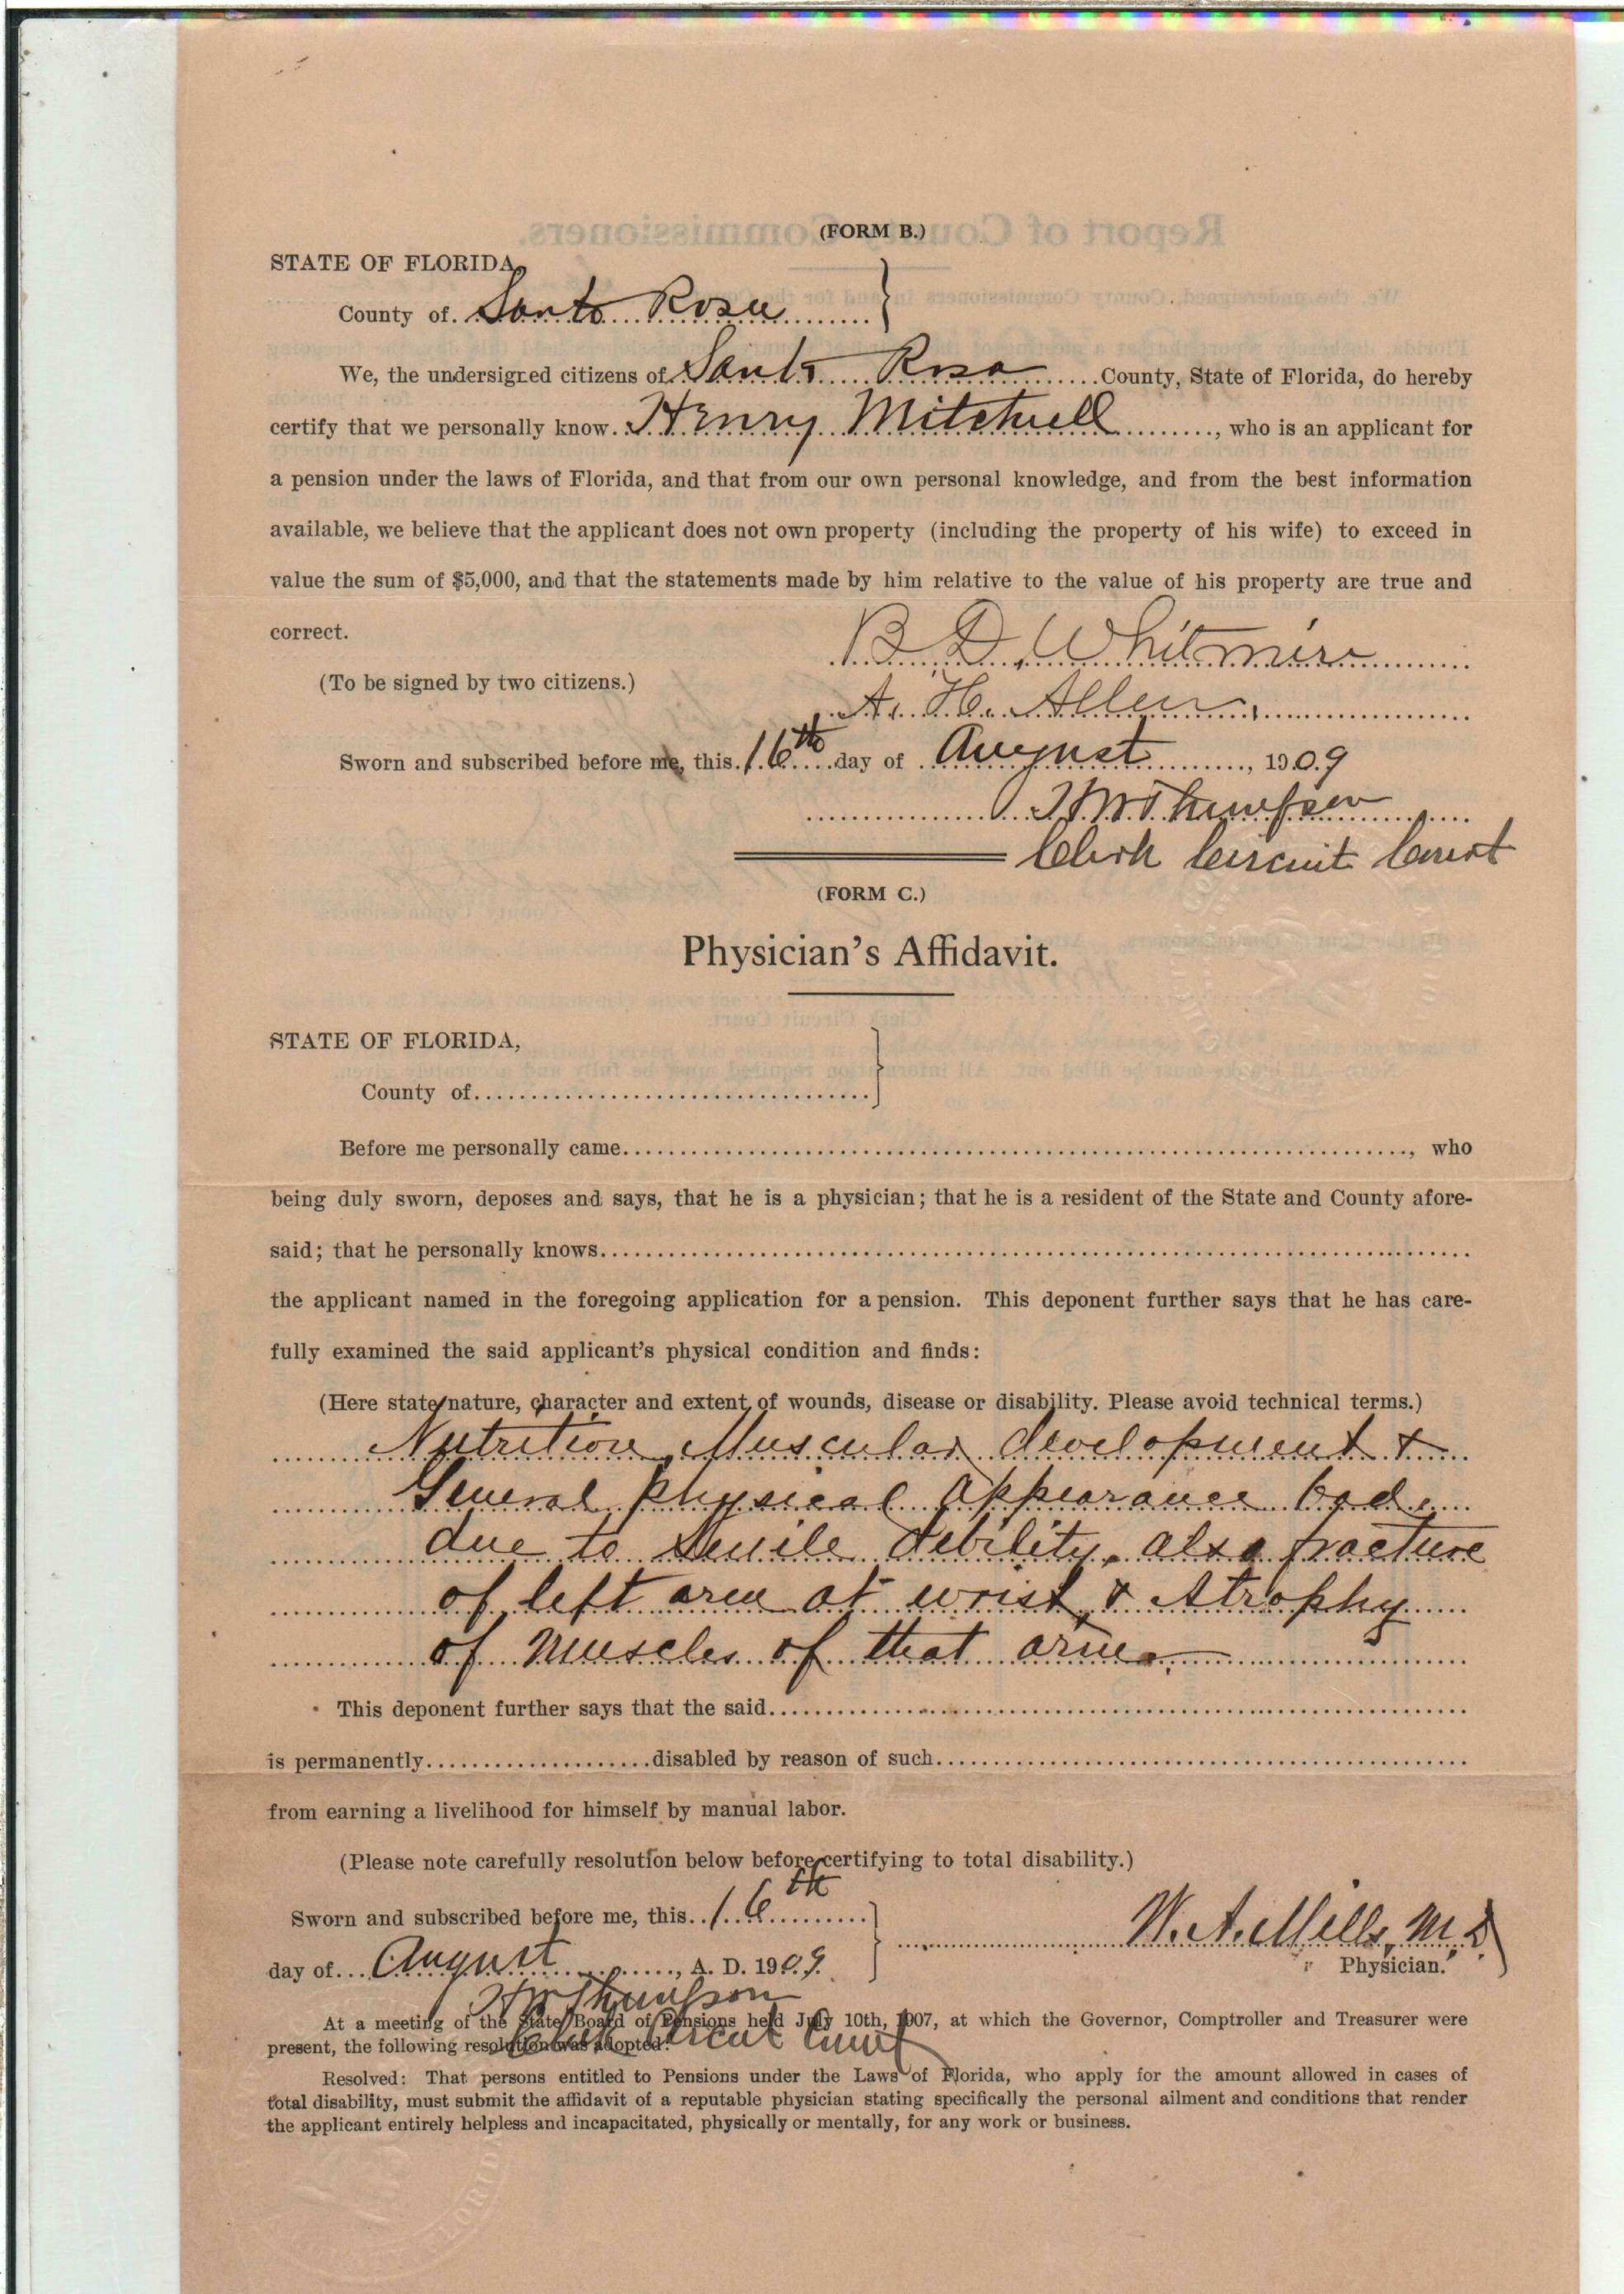 (FORM B.)
STATE OF FLORIDA,
County of Santa Rosa
We, the undersigned citizens of Santa Rosa County, State of Florida, do hereby
certify that we personally know Henry Mitchell, who is an applicant for
a pension under the laws of Florida, and that from our own personal knowledge, and from the best information
available, we believe that the applicant does not own property (including the property of his wife) to exceed in
value the sum of $5,000, and that the statements made by him relative to the value of his property are true and
correct.
B D Whitmire
(To be signed by two citizens.)
A. H. Allen
Sworn and subscribed before me, this 16th day of August, 1909
Thompson
Clerk Circuit Court
(FORM C.)
Physician's Affidavit.
STATE OF FLORIDA,
County of
Before me personally came, who
being duly sworn, deposes and says, that he is a physician; that he is a resident of the State and County afore-
said; that he personally knows
the applicant named in the foregoing application for a pension. This deponent further says that he has care-
fully examined the said applicant's physical condition and finds:
(Here state nature, character and extent of wounds, disease or disability. Please avoid technical terms.)
Nutrition, Muscular development &
General physical appearance bad,
due to Senile debility, also fracture
of left arm at wrist & Atrophy
of muscles of that arm.
This deponent further says that the said
is permanently disabled by reason of such
from earning a livelihood for himself by manual labor.
(Please note carefully resolution below before certifying to total disability.)
Sworn and subscribed before me, this 16th
W. A. Mills, M.D.
day of August, A. D. 1909.
Physician.
Thompson
Clerk Circuit Court
At a meeting of the State Board of Pensions held July 10th, 1907, at which the Governor, Comptroller and Treasurer were
present, the following resolution was adopted:
Resolved: That persons entitled to Pensions under the Laws of Florida, who apply for the amount allowed in cases of
total disability, must submit the affidavit of a reputable physician stating specifically the personal ailment and conditions that render
the applicant entirely helpless and incapacitated, physically or mentally, for any work or business.